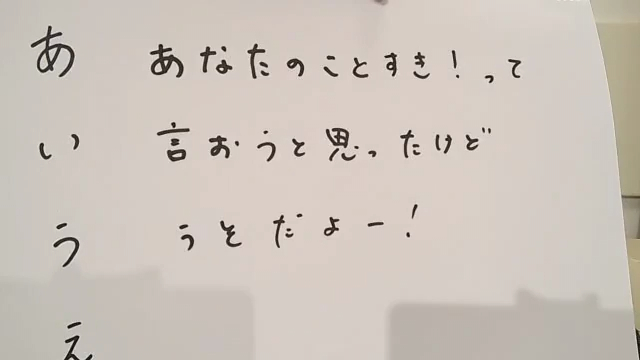 あ あなたのことすき!って
い 言おうと思ったけど
う うそだよー!
え